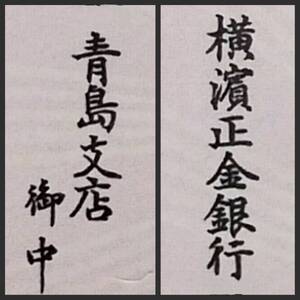 横濱正金銀行
青島支店
御中